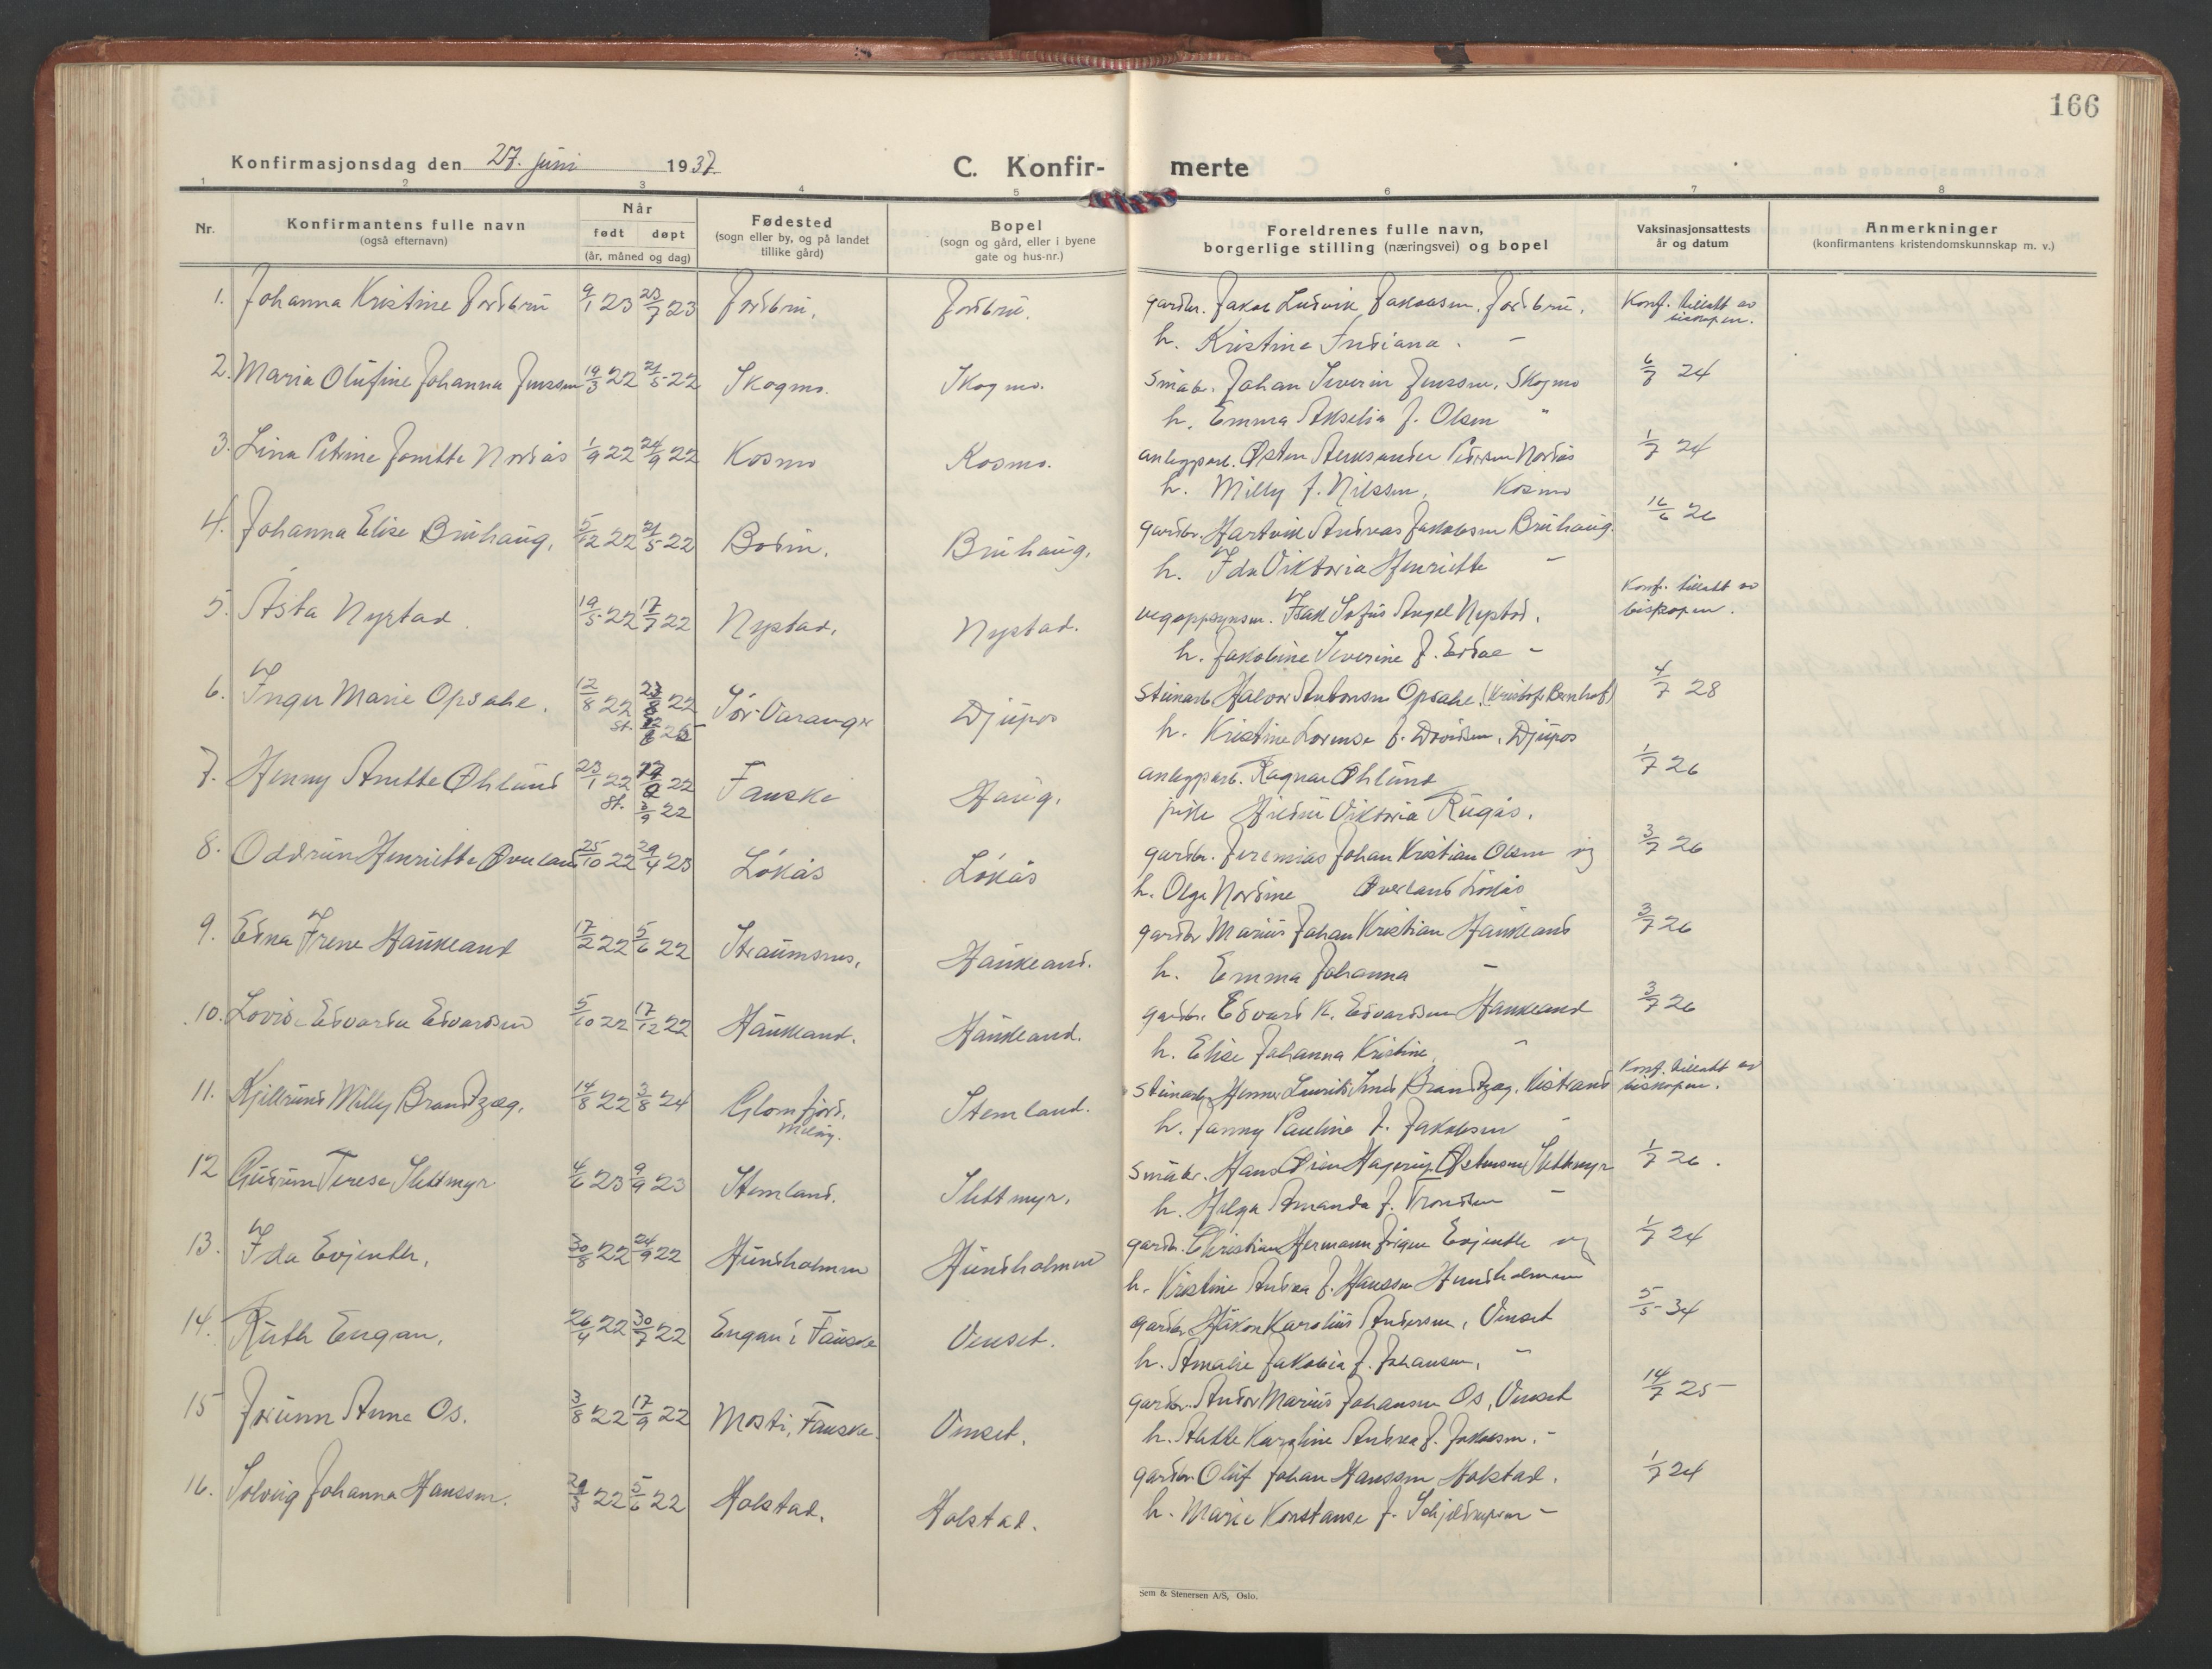 166
Konfirmasjonsdag den 27. juni 1937.
C. Konfir-
merte
1 2 3 4 5 6 7 8
Nr.
Konfirmantens fulle navn
(også efternavn)
Når
født døpt
(år, måned og dag)
Fødested
(sogn eller by, og på landet
tillike gård)
Bopel
(sogn og gård, eller i byene
gate og hus-nr.)
Foreldrenes fulle navn,
borgerlige stilling (næringsvei) og bopel
Vaksinasjonsattests
år og datum
Anmerkninger
(konfirmantens kristendomskunnskap m. v.)
1. Johanna Kristine Jordbru 9/1 23 23/7 23 Jordbru. Jordbru. gardbr. Jakob Ludvik Jakobsen, Jordbru. Konf. tillatt av
biskopen.
h. Kristine Indiana. -
2. Maria Olufine Johanna Jenssen 19/3 22 21/5 22 Skogmo. Skogmo. småbr. Johan Severin Jenssen, Skogmo 6/7 24
h. Emma Akselia f. Olsen "
3. Lina Petrine Jonette Nordås 1/9 22 24/9 22 Kosmo Kosmo. anleggsarb. Østen Aleksander Pedersen Nordås 1/7 24
h. Milly f. Nilssen, Kosmo
4. Johanna Elise Bruhaug, 5/12 22 21/5 22 Bodin. Bruhaug. gardbr. Hartvik Andreas Jakobsen Bruhaug. 16/6 26
h. Ida Viktoria Henriette -
5. Asta Nystad. 19/5 22 17/7 22 Nystad. Nystad. vegoppsynsm. Isak Sofus Angel Nystad. Konf. tillatt av
biskopen.
h. Jakobine Severine f. Erdal -
6. Inger Marie Opsahl. 12/8 22 22 Sør-Varanger Djupos steinarb. Halvor Antonsen Opsahl. (Kristofs Bernhof) 4/7 28
st.
h. Kristine Lorense f. Davidsen, Djupos
7. Henny Anette Øhlund 23/1 22 22 Fauske Haug. anleggsarb. Ragnar Øhlund 1/7 26
st. 3/9 22
pike Hildur Viktoria Rugås.
8. Oddrun Henriette Øverland 25/10 22 29/4 23 Løkås Løkås gardbr. Jeremias Johan Kristian Olsen og 3/7 26
h. Olga Nordine Øverland Løkås
9. Edna Irene Haukland 17/2 22 5/6 22 Straumsnes. Haukland. gardbr Marius Johan Kristian Haukland 3/7 26
h. Emma Johanna -
10. Lovise Edvarda Edvardsen 5/10 22 17/12 22 Haukland. Haukland. gardbr. Edvard K. Edvardsen Haukland 3/7 26
h. Elise Johanna Kristine "
11. Kjellrund Milly Brandtzæg. 14/8 22 3/8 24 Glomfjord, Stemland. steinarb. Henner Laurits Brandtzæg, Kistrand Konf. tillatt av
Meløy. biskopen.
h. Fanny Pauline f. Jakobsen -
12 Gudrun Terese Slettmyr 4/6 23 9/9 23 Stemland. Slettmyr. småbr. Hans Hagerup Slettmyr 1/7 26.
h. Helga Amanda f. Trondsen -
13. Ida Evjenth. 30/8 22 24/9 22 Hundholmen Hundholmen gardbr. Christian Hermann Evjenth og 1/7 24
h. Kristine Andrea f. Hanssen Hundholmen
14. Ruth Engan. 26/4 22 30/7 22 Engan i Fauske Venset. gardbr Håkon Karolius Andersen, Venset 5/5 34
h. Amalie Jakobia f. Johansen, "
15 Jorunn Anne Os. 3/8 22 17/9 22 Mosti, Fauske. Venset. gardbr. Andor Marius Johansen Os, Venset 14/7 25
h. Alette Karoline Andrea f. Jakobsen. -
16. Solveig Johanna Hanssen. 29/3 22 5/6 22 Holstad. Holstad. gardbr Oluf Johan Hanssen Holstad. 1/7 24
h. Marie Konstanse f. Schjeldrupsen -
Sem & Stenersen A/S, Oslo.